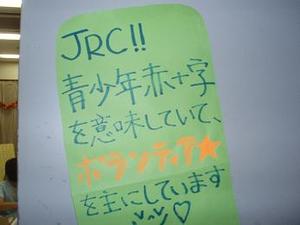 JRC!!
青少年赤十字
を意味していて、
ボランティア★
を主にしています
♡